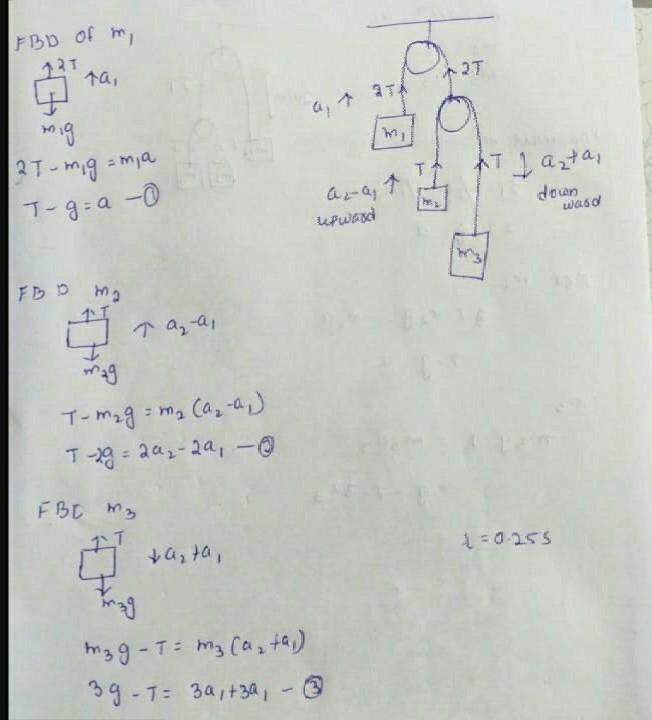 FBD of m₁
↑2T
↑a₁
m₁g
2T - m₁g = m₁a
T - g = a —①
2T
2T
a₁ ↑
m₁
T
T
↓ a₂+a₁
down
ward
a₂-a₁ ↑
upward
m₂
m₃
FBD m₂
↑T
↑ a₂-a₁
m₂g
T - m₂g = m₂(a₂-a₁)
T - 2g = 2a₂ - 2a₁ —②
FBD m₃
↑T
↓a₂+a₁
m₃g
m₃g - T = m₃(a₂+a₁)
3g - T = 3a₁+3a₁ - ③
= 0.25s